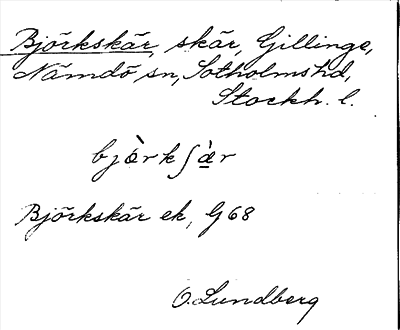 Björkskär, skär, Gillinge,
Nämdö sn, Sotholms hd,
Stockh. l.
bjœ̀rkʃæ̀r
Björkskär ek, G68
O. Lundberg